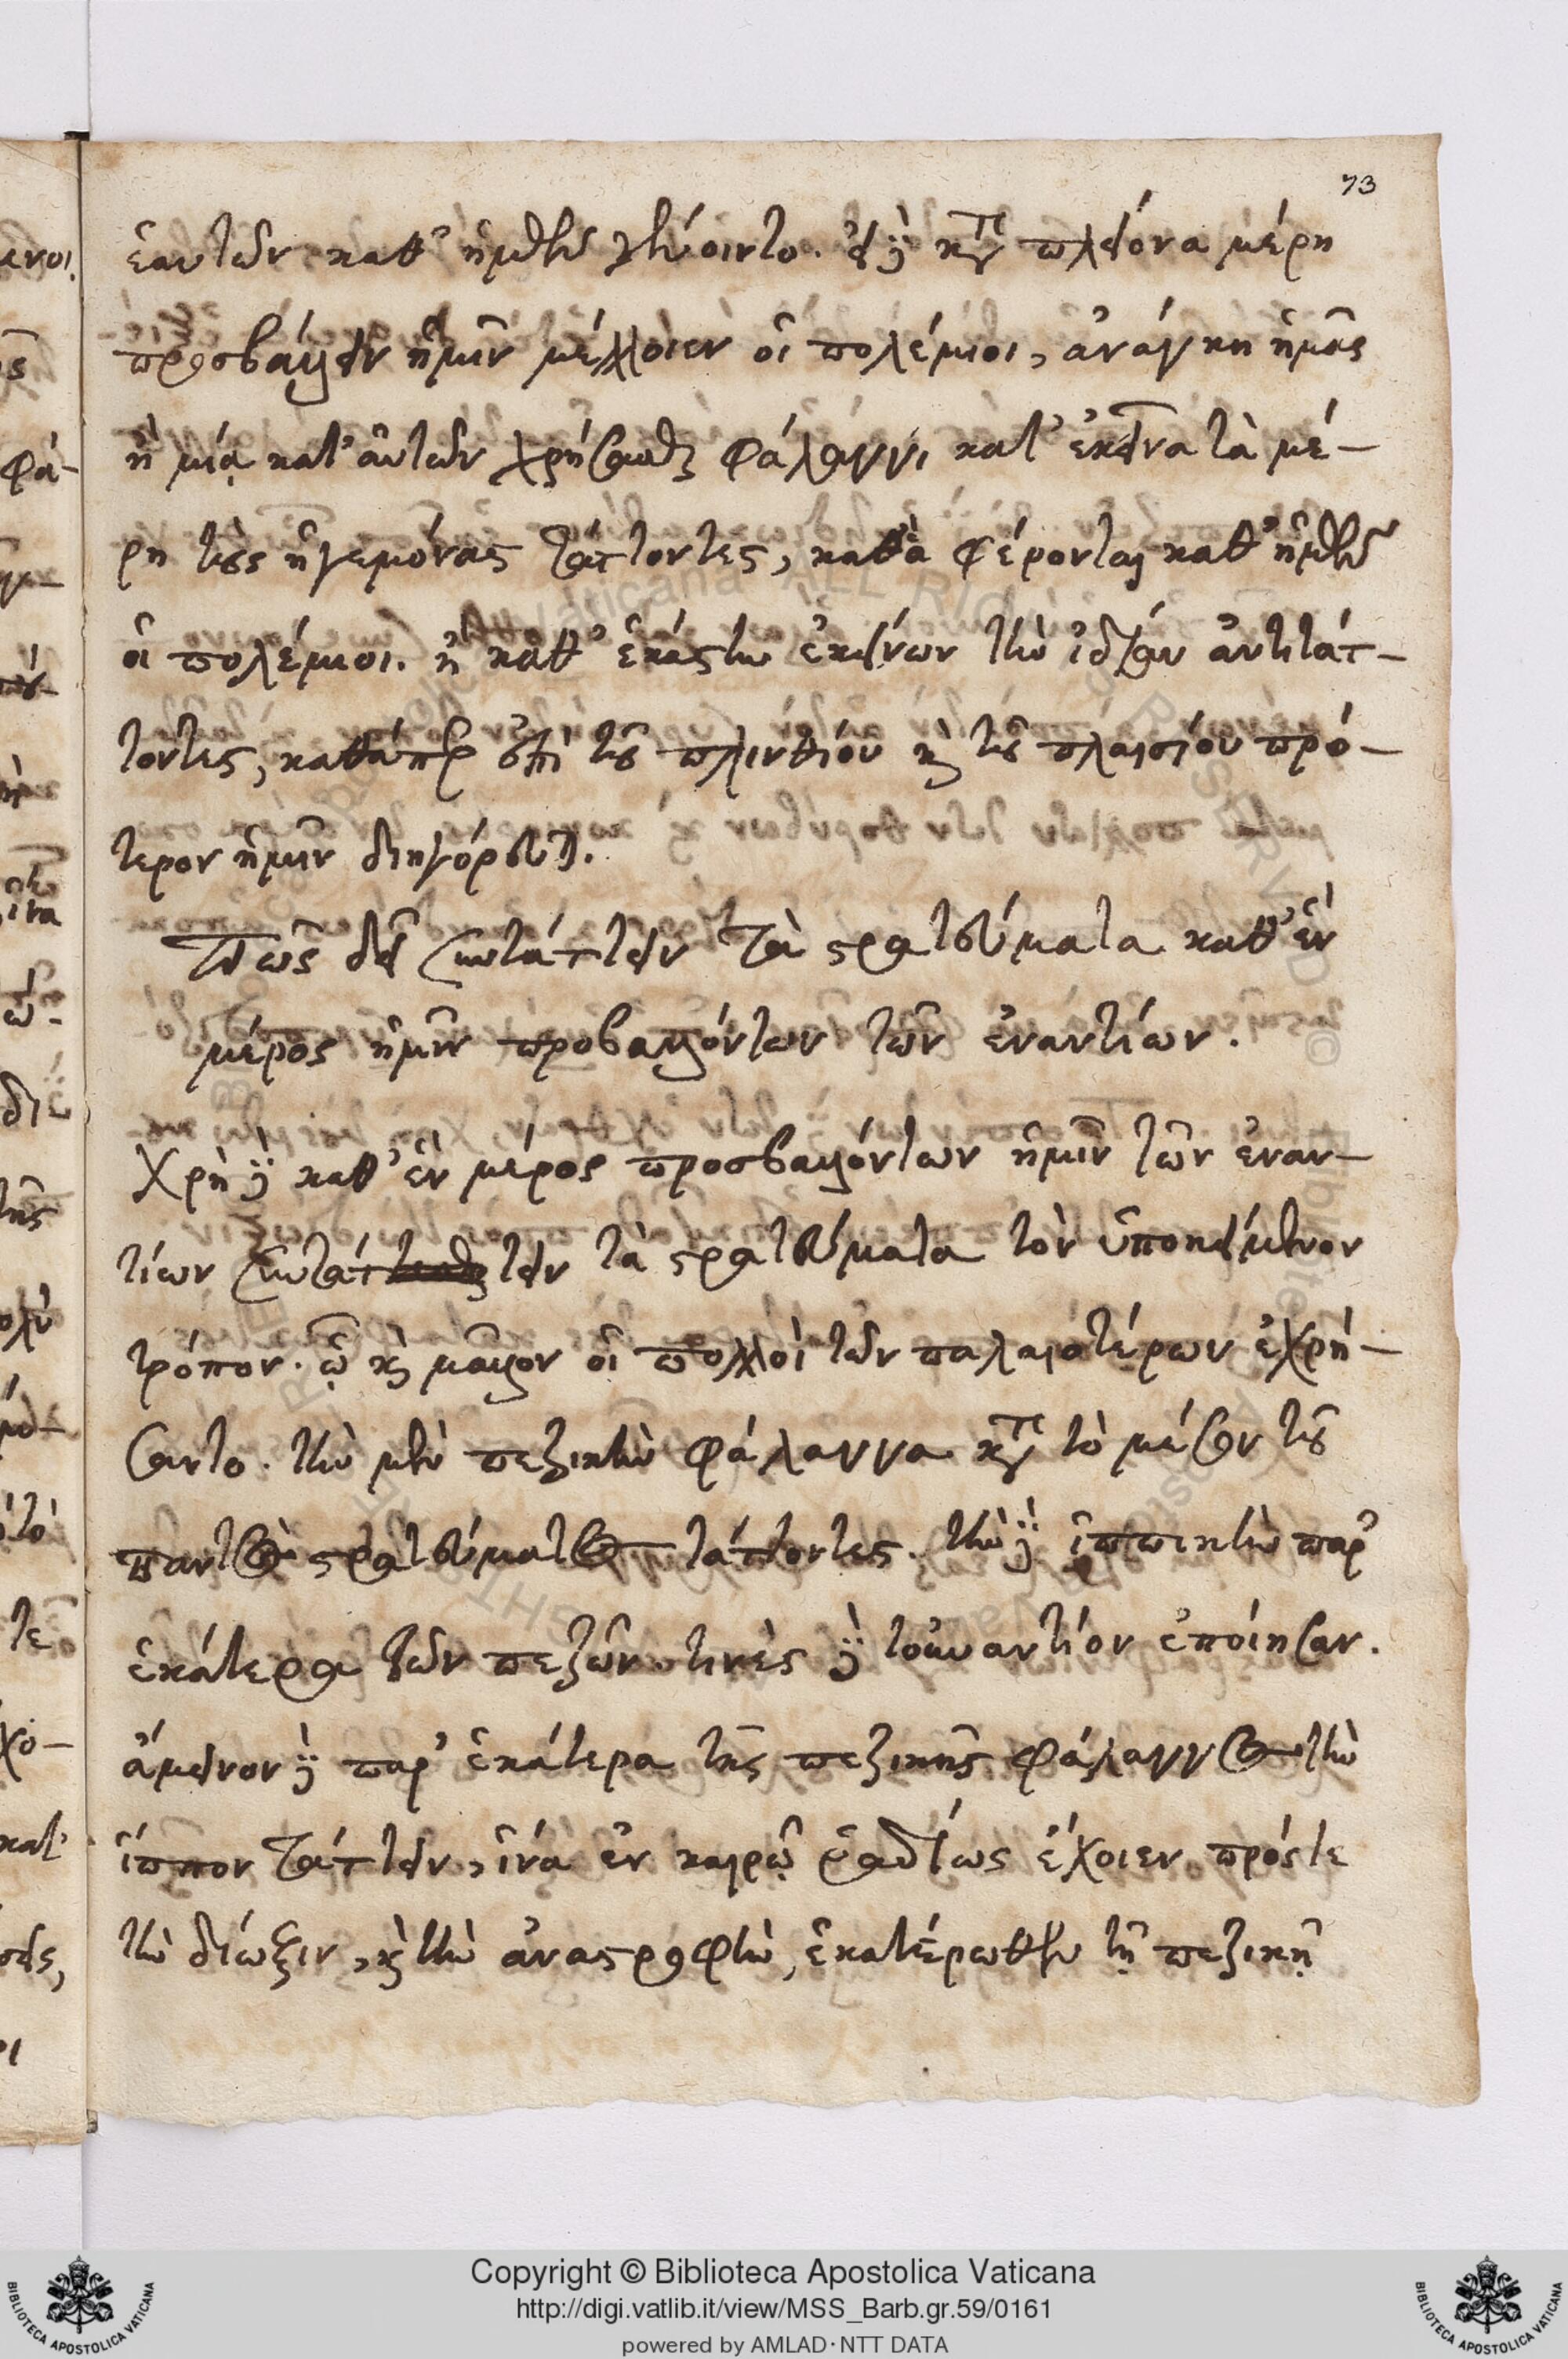 73
ἑαυτῶν καθ' ἡμῶν γένοιντο. εἰ δὲ κατὰ πλείονα μέρη
προσβάλλειν ἡμῖν μέλλοιεν οἱ πολέμιοι, ἀνάγκη ἡμᾶς
ἢ μιᾷ κατ' αὐτῶν χρήσασθαι φάλαγγι κατ' ἐκεῖνα τὰ μέ-
ρη τοὺς ἡγεμόνας τάττοντες, καθ' ἃ φέρονται καθ' ἡμῶν
οἱ πολέμιοι. ἢ καθ' ἑκάστην ἐκείνων τὴν ἰδίαν ἀντιτάτ-
τοντες, καθάπερ ἐπὶ τοῦ πλινθίου καὶ τοῦ πλαισίου πρό-
τερον ἡμῖν διηγόρευται.
Πῶς δεῖ συντάττειν τὰ στρατεύματα καθ' ἓν
μέρος ἡμῖν προβαλλόντων τῶν ἐναντίων.
Χρὴ δὲ καθ' ἓν μέρος προσβαλλόντων ἡμῖν τῶν ἐναν-
τίων συντάττειν τὰ στρατεύματα τὸν ὑποκείμενον
τρόπον. ᾧ καὶ μᾶλλον οἱ πολλοὶ τῶν παλαιοτέρων ἐχρή-
σαντο. τὴν μὲν πεζικὴν φάλαγγα κατὰ τὸ μέσον τοῦ
παντὸς στρατεύματος τάττοντες. τὴν δὲ ἱππικὴν παρ'
ἑκάτερα τῶν πεζῶν. τινὲς δὲ τοὐναντίον ἐποίησαν.
ἄμεινον δὲ παρ' ἑκάτερα τῆς πεζικῆς φάλαγγος τὴν
ἵππον τάττειν, ἵνα ἐν καιρῷ ῥᾳδίως ἔχοιεν πρός τε
τὴν δίωξιν, καὶ τὴν ἀναστροφὴν, ἑκατέρωθεν τῇ πεζικῇ
Copyright © Biblioteca Apostolica Vaticana
http://digi.vatlib.it/view/MSS_Barb.gr.59/0161
powered by AMLAD·NTT DATA
BIBLIOTECA APOSTOLICA VATICANA
BIBLIOTECA APOSTOLICA VATICANA